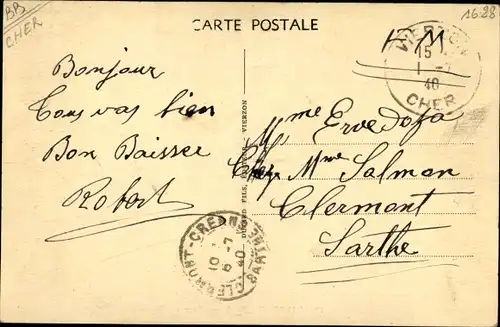 BB
CHER
CARTE POSTALE
1628
F M
VIERZON
15
1 -7
40
CHER
Bonjour
Tous vas bien
Bon Baisser
Robert
VIERZON
Mme Ervedofa
Chez Mme Salmon
Clermont
Sarthe
CLERMONT-CREANS
10
6 -7
40
SARTHE